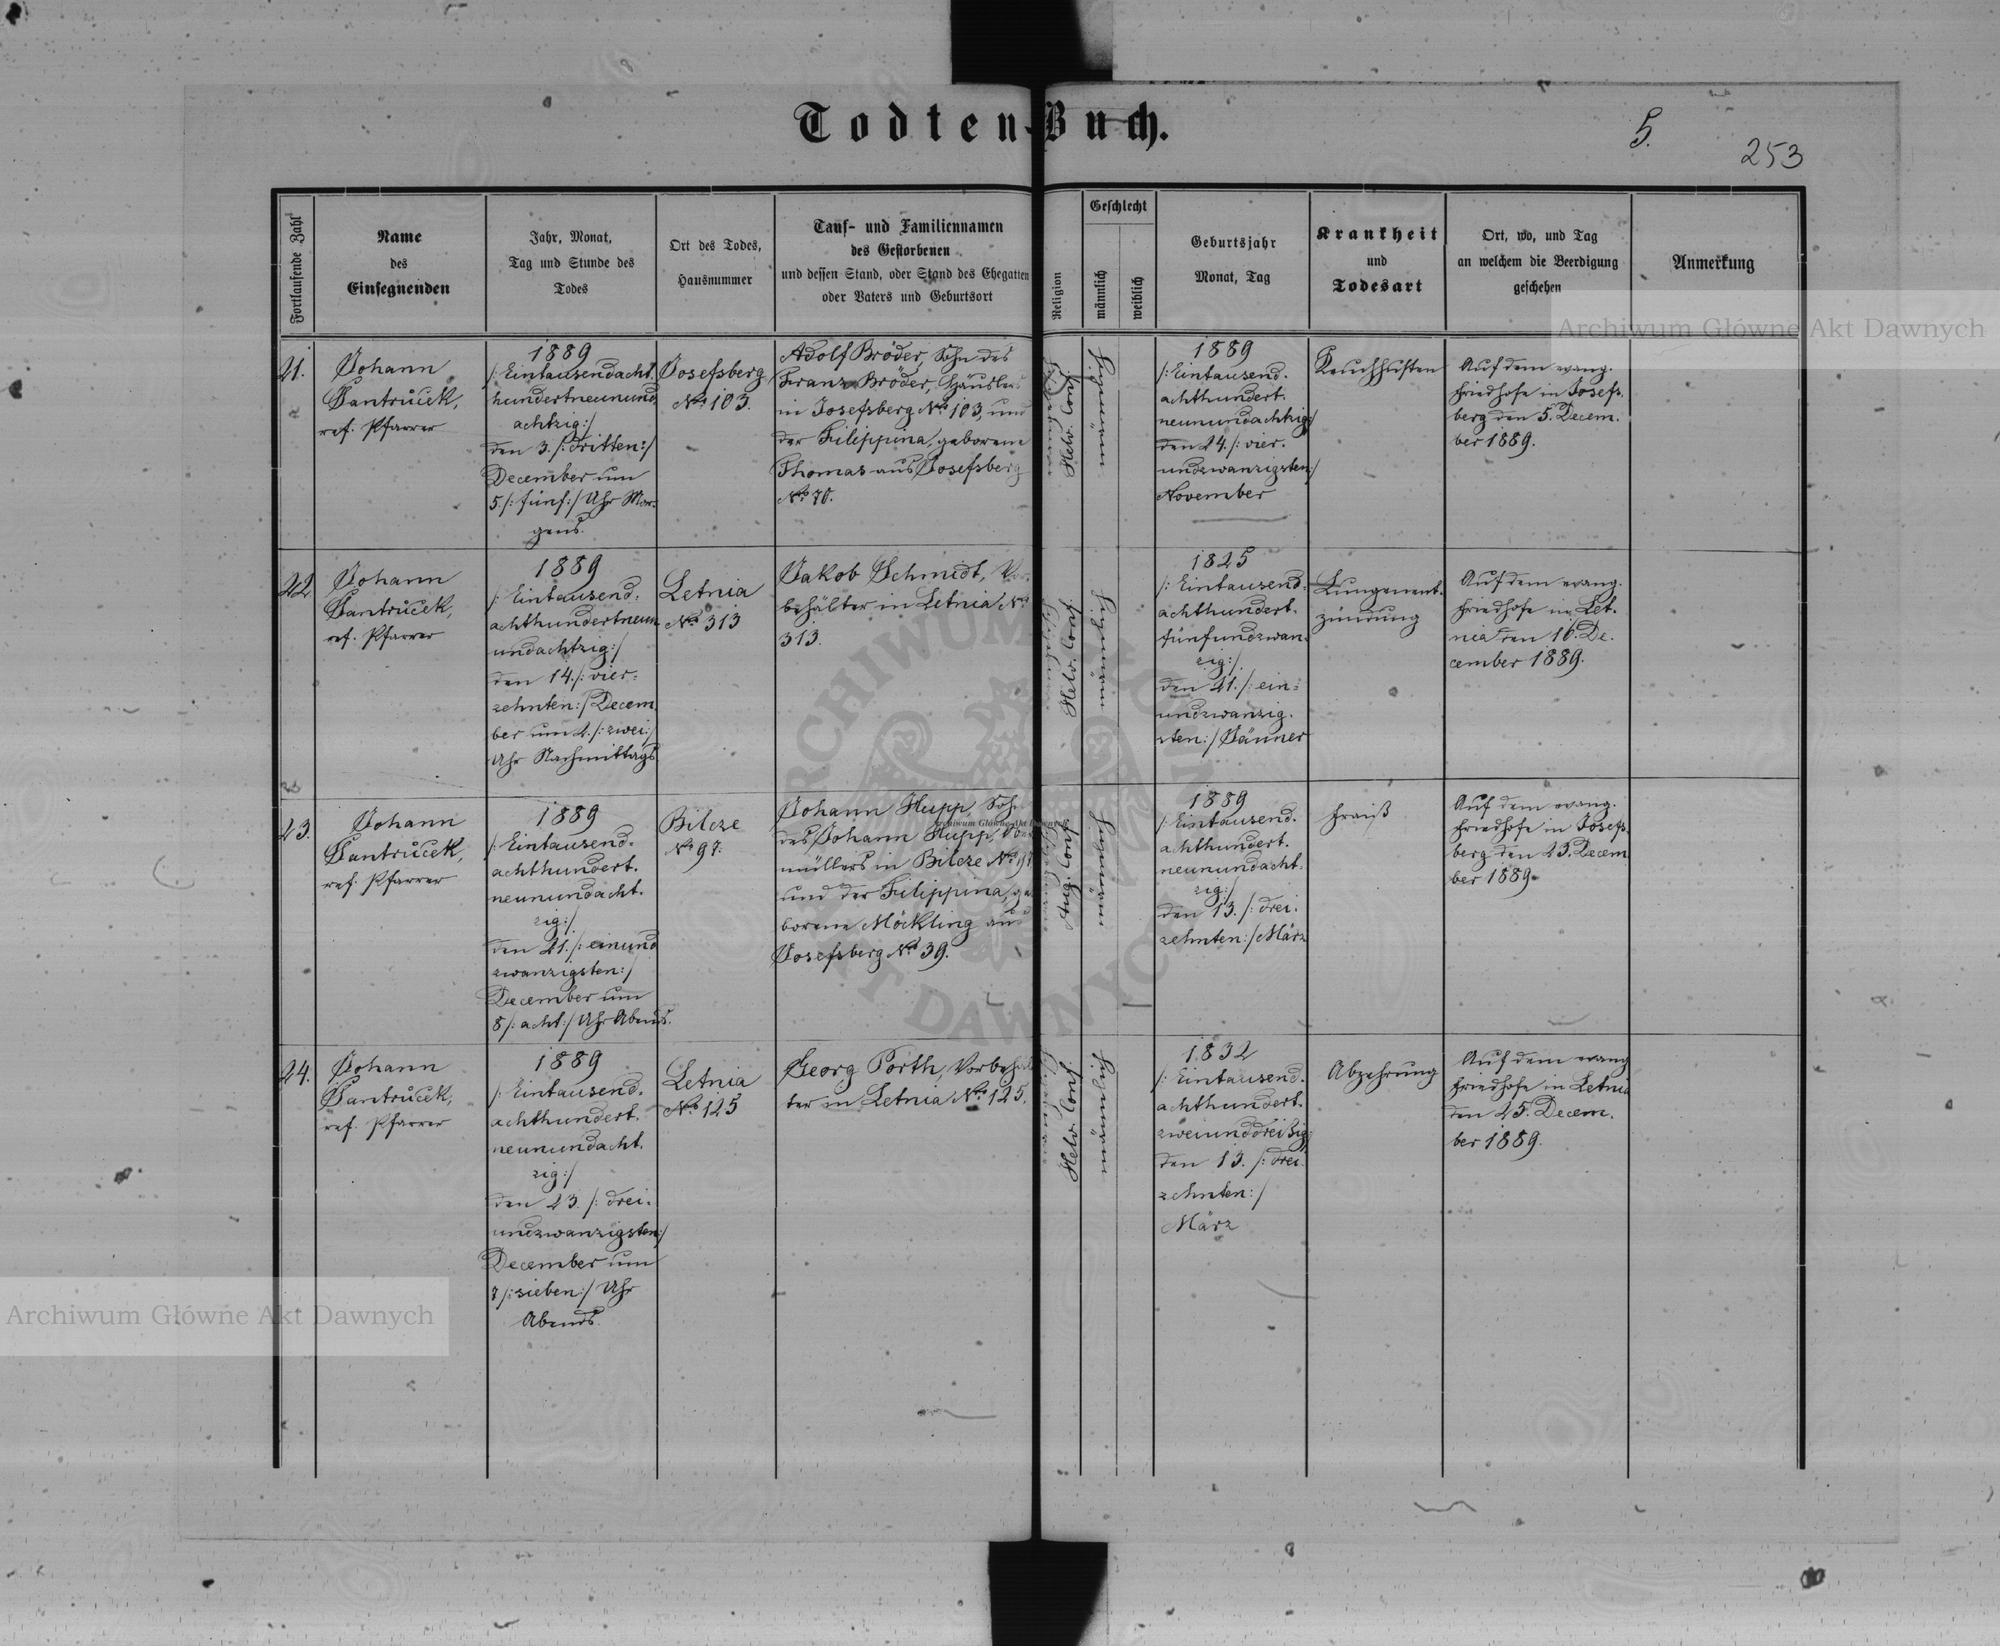 Todten-Buch.
5.
253
Fortlaufende Zahl
Name
des
Einsegnenden
Jahr, Monat,
Tag und Stunde des
Todes
Ort des Todes,
Hausnummer
Tauf- und Familiennamen
des Gestorbenen
und dessen Stand, oder Stand des Ehegatten
oder Vaters und Geburtsort
Religion
Geschlecht
männlich
weiblich
Geburtsjahr
Monat, Tag
Krankheit
und
Todesart
Ort, wo, und Tag
an welchem die Beerdigung
geschehen
Anmerkung
21.
Johann
Santrůček,
ref. Pfarrer
1889
/: Eintausendacht.
hundertneunund.
achtzig:/
den 3. /: dritten:/
December um
5./: fünf:/ Uhr Mor-
gens.
Josefsberg
No 103.
Adolf Bröder, Sohn des
Franz Bröder, Häuslers
in Josefsberg No 103, und
der Filippina, geborene
Thomas aus Josefsberg
No 70.
Helv. Conf.
1889
/: Eintausend.
achthundert.
neunundachtzig:/
den 24. /: vier.
undzwanzigsten:/
November
Keuchhusten
Auf dem evang.
Friedhofe in Josefs.
berg den 5. Decem.
ber 1889.
22.
Johann
Santrůček,
ref. Pfarrer
1889
/: Eintausend.
achthundertneun
undachtzig:/
den 14. /: vier.
zehnten:/ Decem.
ber um 2. /: zwei:/
Uhr Nachmittags
Letnia
No 313
Jakob Schmidt, Vor.
behälter in Letnia No
313.
Helv. Conf.
1825
/: Eintausend.
achthundert.
fünfundzwan.
zig:/
den 21. /: ein.
undzwanzig.
sten:/ Jänner
Lungenent.
zündung
Auf dem evang.
Friedhofe in Let.
nia den 16. De.
cember 1889.
23.
Johann
Santrůček,
ref. Pfarrer
1889
/: Eintausend.
achthundert.
neunundacht.
zig:/
den 21. /: einund
zwanzigsten:/
December um
8 /: acht:/ Uhr Abends.
Bilcze
No 97.
Johann Hupp, Sohn
des Johann Hupp,
müllers in Bilcze No 97
und der Filippina, ge
borene Möckling aus
Josefsberg No 39.
Aug. Conf.
1889
/: Eintausend.
achthundert.
neunundacht.
zig:/
den 13. /: drei.
zehnten:/ März
Fraiß
Auf dem evang.
Friedhofe in Josefs.
berg den 23. Decem
ber 1889.
24.
Johann
Santrůček,
ref. Pfarrer
1889
/: Eintausend.
achthundert.
neunundacht.
zig:/
den 23. /: drei.
undzwanzigsten:/
December um
7 /: sieben:/ Uhr
Abends.
Letnia
No 125
Georg Porth, Vorbehäl
ter in Letnia No 125.
Helv. Conf.
1832
/: Eintausend.
achthundert.
zweiunddreißig:/
den 13. /: drei.
zehnten:/
März
Abzehrung
Auf dem evang
Friedhofe in Letnia
den 25. Decem.
ber 1889.
Archiwum Główne Akt Dawnych
Archiwum Główne Akt Dawnych
Archiwum Główne Akt Dawnych